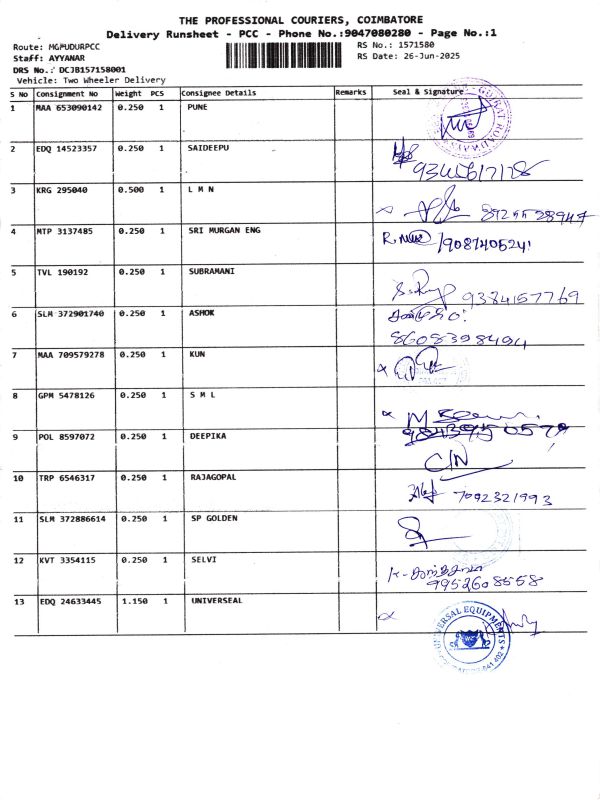 THE PROFESSIONAL COURIERS, COIMBATORE
Delivery Runsheet - PCC - Phone No.:9047080280 - Page No.:1
Route: MGPUDURPCC
RS No.: 1571580
Staff: AYYANAR
RS Date: 26-Jun-2025
DRS No.: DCJB157158001
Vehicle: Two Wheeler Delivery
S No Consignment No Weight PCS Consignee Details Remarks Seal & Signature
1 MAA 653090142 0.250 1 PUNE
2 EDQ 14523357 0.250 1 SAIDEEPU
3 KRG 295040 0.500 1 L M N
4 MTP 3137485 0.250 1 SRI MURGAN ENG
5 TVL 190192 0.250 1 SUBRAMANI
9384157769
6 SLM 372901740 0.250 1 ASHOK
8608398494
7 MAA 709579278 0.250 1 KUN
8 GPM 5478126 0.250 1 S M L
9 POL 8597072 0.250 1 DEEPIKA
10 TRP 6546317 0.250 1 RAJAGOPAL
7092321993
11 SLM 372886614 0.250 1 SP GOLDEN
12 KVT 3354115 0.250 1 SELVI
9952608558
13 EDQ 24633445 1.150 1 UNIVERSEAL
UNIVERSAL EQUIPMENTS